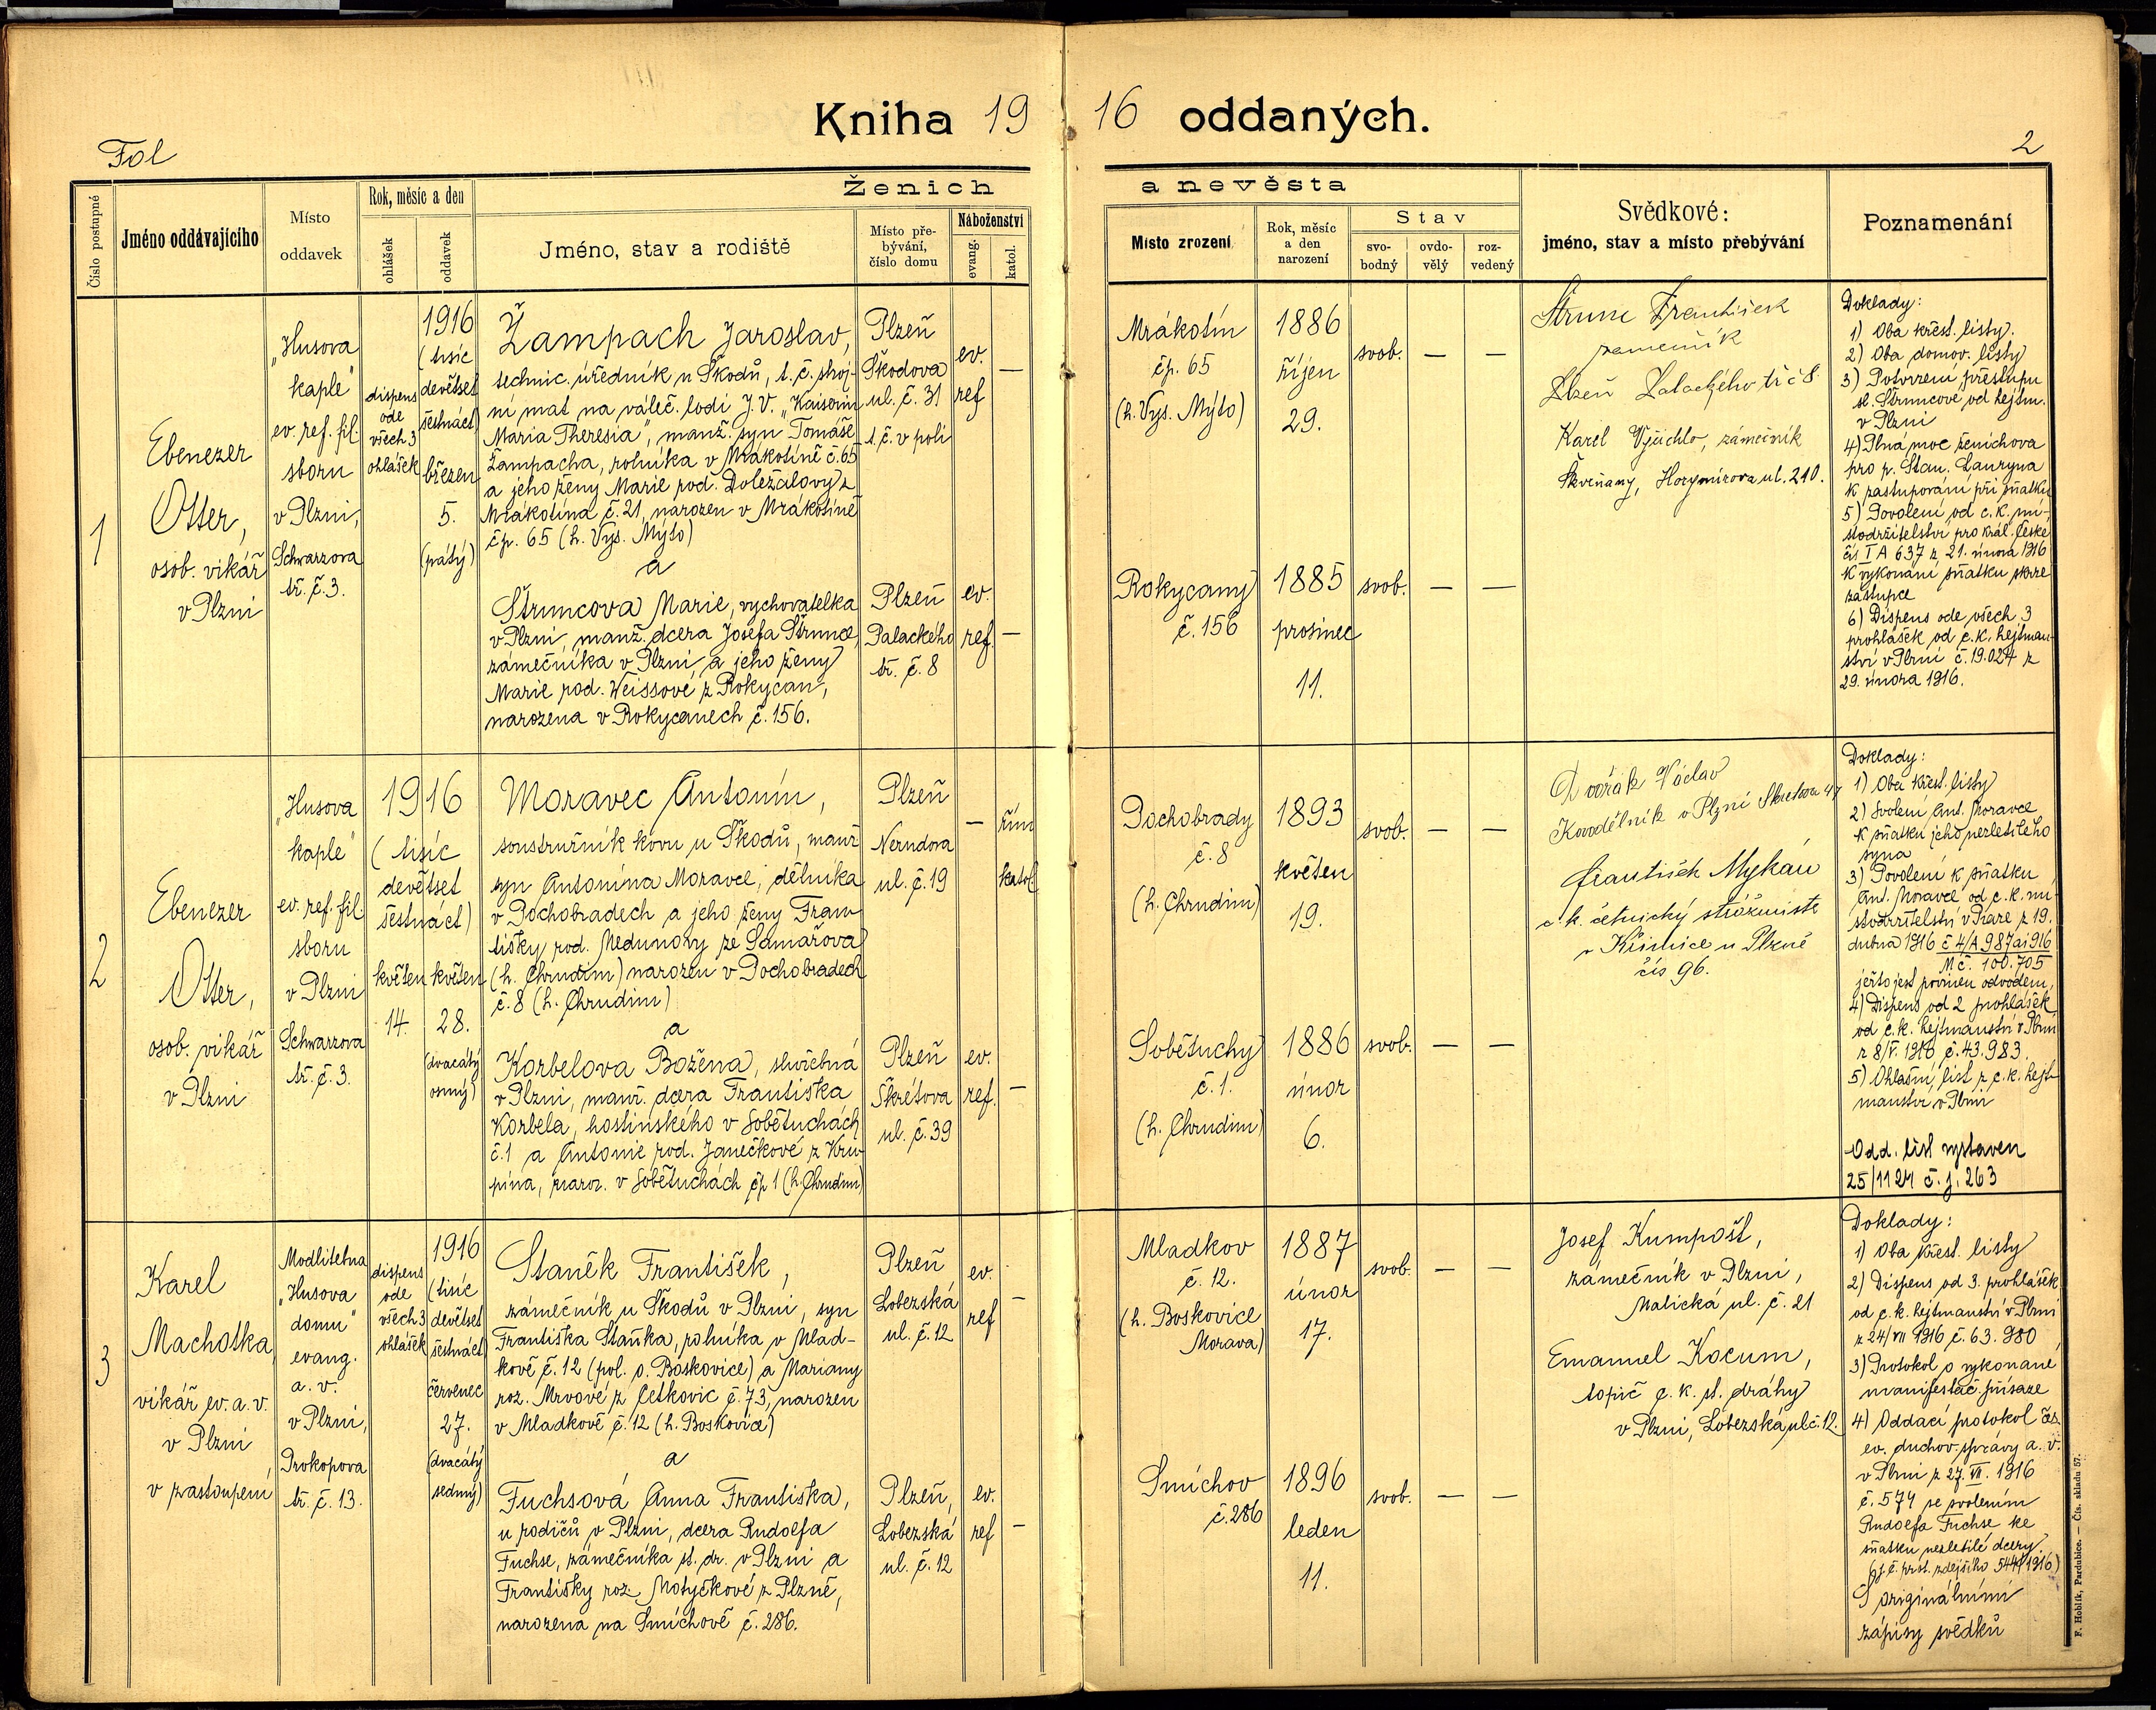 Kniha 1916 oddaných.
Fol
2
Číslo postupné
Jméno oddávajícího
Místo
oddavek
Rok, měsíc a den
ohlášek
oddavek
Ženich
Jméno, stav a rodiště
Místo pře-
bývání,
číslo domu
Náboženství
evang.
katol.
a nevěsta
Místo zrození
Rok, měsíc
a den
narození
Stav
svo-
bodný
ovdo-
vělý
roz-
vedený
Svědkové:
jméno, stav a místo přebývání
Poznamenání
1
Ebenezer
Otter,
osob. vikář
v Plzni
„Husova
kaple"
ev. ref. fil.
sboru
v Plzni,
Schwarzova
tř. č. 3.
dispens
ode
všech 3
ohlášek
1916
(tisíc
devětset
šestnáct)
březen
5.
(pátý)
Žampach Jaroslav,
technic. úředník u Škodů, t. č. stroj-
ní mat na váleč. lodi J. V. „Kaiserin
Maria Theresia", manž. syn Tomáše
Žampacha, rolníka v Mrákotíně č. 65
a jeho ženy Marie rod. Doležalovy z
Mrákotína č. 21, narozen v Mrákotíně
čp. 65 (h. Vys. Mýto)
a
Štruncova Marie, vychovatelka
v Plzni, manž. dcera Josefa Štrunce,
zámečníka v Plzni a jeho ženy
Marie rod. Weissové z Rokycan,
narozena v Rokycanech č. 156.
Plzeň
Škodova
ul. č. 31
t. č. v poli
ev.
ref
—
Plzeň
Palackého
tř. č. 8
ev.
ref.
—
Mrákotín
čp. 65
(h. Vys. Mýto)
1886
říjen
29.
svob.
—
—
Rokycany
č. 156
1885
prosinec
11.
svob.
—
—
Štrunc František
zamečník
Plzeň Palackého tř č 8
Karel Vyčichlo, zámečník
Škvrňany, Horymírova ul. 210.
Doklady:
1) Oba křest. listy.
2) Oba domov. listy
3) Potvrzení přestupu
sl. Štruncové od hejtm.
v Plzni
4) Plná moc ženichova
pro p. Stan. Lauryna
k zastupování při sňatku
5) Povolení od c. k. mí-
stodržitelství pro král. České
čís I A 637 z 21. února 1916
k vykonání sňatku skrze
zástupce
6) Dispens ode všech 3
prohlášek od c. k. hejtman-
ství v Plzni č. 19.024 z
29. února 1916.
2
Ebenezer
Otter,
osob. vikář
v Plzni
„Husova
kaple"
ev. ref. fil.
sboru
v Plzni
Schwarzova
tř. č. 3.
1916
(tisíc
devětset
šestnáct)
květen
14.
květen
28.
(dvacátý
osmý)
Moravec Antonín,
soustružník kovu u Škodů, manž
syn Antonína Moravce, dělníka
v Pochobradech a jeho ženy Fran-
tišky rod. Medunovy ze Samařova
(h. Chrudim) narozen v Pochobradech
č. 8 (h. Chrudim)
a
Korbelova Božena, služebná
v Plzni, manž. dcera Františka
Korbela, hostinského v Sobětuchách
č. 1 a Antonie rod. Janečkové z Kru-
pína, naroz. v Sobětuchách čp 1 (h. Chrudim)
Plzeň
Nerudova
ul. č. 19
—
řím
katol
Plzeň
Škrétova
ul. č. 39
ev.
ref.
—
Pochobrady
č. 8
(h. Chrudim)
1893
květen
19.
svob.
—
—
Sobětuchy
č. 1.
(h. Chrudim)
1886
únor
6.
svob.
—
—
Dvořák Václav
Kovodělník v Plzni Skretova 47
František Mykán
c. k. četnický strážmistr
v Křimice u Plzně
čís 96.
Doklady:
1) Oba křest. listy
2) Svolení Ant. Moravce
k sňatku jeho nezletilého
syna
3) Povolení k sňatku
Ant. Moravce od c. k. mí-
stodržitelství v Praze z 19.
dubna 1916 č 4/A 987 ai 916
M č. 100.705
ježto jest povinen odvodem,
4) Dispens od 2 prohlášek
od c. k. hejtmanství v Plzni
z 8/V. 1916 č. 43.983.
5) Ohlašní list z c. k. hejt-
manství v Plzni
Odd. list vystaven
25/11 24 č. j. 263
3
Karel
Machotka,
vikář ev. a. v.
v Plzni,
v zastoupení
Modlitebna
„Husova
domu"
evang.
a. v.
v Plzni,
Prokopova
tř. č. 13.
dispens
ode
všech 3
ohlášek
1916
(tisíc
devětset
šestnáct)
červenec
27.
(dvacátý
sedmý)
Staněk František,
zámečník u Škodů v Plzni, syn
Františka Staňka, rolníka v Mlad-
kově č. 12 (pol. o. Boskovice) a Mariany
roz. Mrvové z Cetkovic č. 73, narozen
v Mladkově č. 12 (h. Boskovice)
a
Fuchsová Anna Františka,
u rodičů v Plzni, dcera Rudolfa
Fuchse, zámečníka st. dr. v Plzni a
Františky roz. Motyčkové z Plzně,
narozena na Smíchově č. 286.
Plzeň
Lobezská
ul. č. 12
ev.
ref
—
Plzeň,
Lobezská
ul. č. 12
ev.
ref
—
Mladkov
č. 12.
(h. Boskovice
Morava)
1887
únor
17.
svob.
—
—
Smíchov
č. 286
1896
leden
11.
svob.
—
—
Josef Kumpošt,
zámečník v Plzni,
Malická ul. č. 21
Emanuel Kocum,
topič c. k. st. dráhy
v Plzni, Lobezská ul č. 12.
Doklady:
1) Oba křest. listy
2) Dispens od 3. prohlášek
od c. k. hejtmanství v Plzni
z 24/VII 1916 č. 63.980
3) Protokol o vykonané
manifestač. přísaze
4) Oddací protokol čes.
ev. duchov. správy a. v.
v Plzni z 27. VII. 1916
č. 574 se svolením
Rudolfa Fuchse ke
sňatku nezletilé dcery.
S originálními
zápisy svědků
F. Hoblík, Pardubice. — Čís. skladu 57.